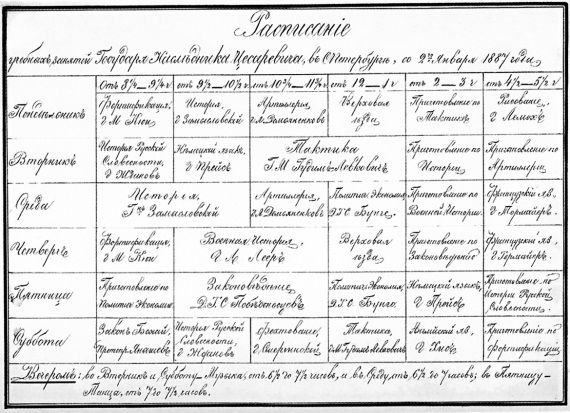 Расписаніе
учебныхъ занятій Государя Наслѣдника Цесаревича, въ С.Петербургѣ, со 2го Января 1887 года.
отъ 8½ — 9¼ ч отъ 9½ — 10½ ч отъ 10¾ — 11¾ ч отъ 12 — 1 ч отъ 2 — 3 ч отъ 4½ — 5½ ч
Понедѣльникъ
Фортификація, Г. М. Кюи
Исторія, Г. Замысловскій
Артиллерія, Г. М. Демьяненковъ
Верховая ѣзда
Приготовленіе по Тактикѣ
Рисованіе, Г. Лемохъ
Вторникъ
Исторія Русской Словесности, Г. Ждановъ
Нѣмецкій языкъ, Г. Прейсъ
Тактика Г. М. Гудимъ-Левковичъ
Приготовленіе по Исторіи
Приготовленіе по Артиллеріи
Среда
Исторія, Г. Замысловскій
Артиллерія, Г. М. Демьяненковъ
Политич. Экономія, Д. Т. С. Бунге
Приготовленіе по Военной Исторіи
Французскій яз.
Четвергъ
Фортификація, Г. М. Кюи
Военная Исторія, Г. Л. Лееръ
Верховая ѣзда
Приготовленіе по Законовѣдѣнію
Французскій яз.
Пятница
Приготовленіе по Политич. Экономіи
Законовѣдѣніе Д. Т. С. Побѣдоносцевъ
Политич. Экономія, Д. Т. С. Бунге
Нѣмецкій языкъ, Г. Прейсъ
Приготовленіе по Исторіи Русской Словесности
Суббота
Законъ Божій, Протоер. Янышевъ
Исторія Русской Словесности, Г. Ждановъ
Фехтованіе,
Тактика, Г. М. Гудимъ-Левковичъ
Англійскій яз., Г. Хисъ
Приготовленіе по Фортификаціи
Вечеромъ: во Вторникъ и Субботу — Музыка, отъ 6½ до 7½ часовъ, и въ Среду отъ 6½ до 7 часовъ; въ Пятницу —
Танцы, отъ 7 до 7½ часовъ.